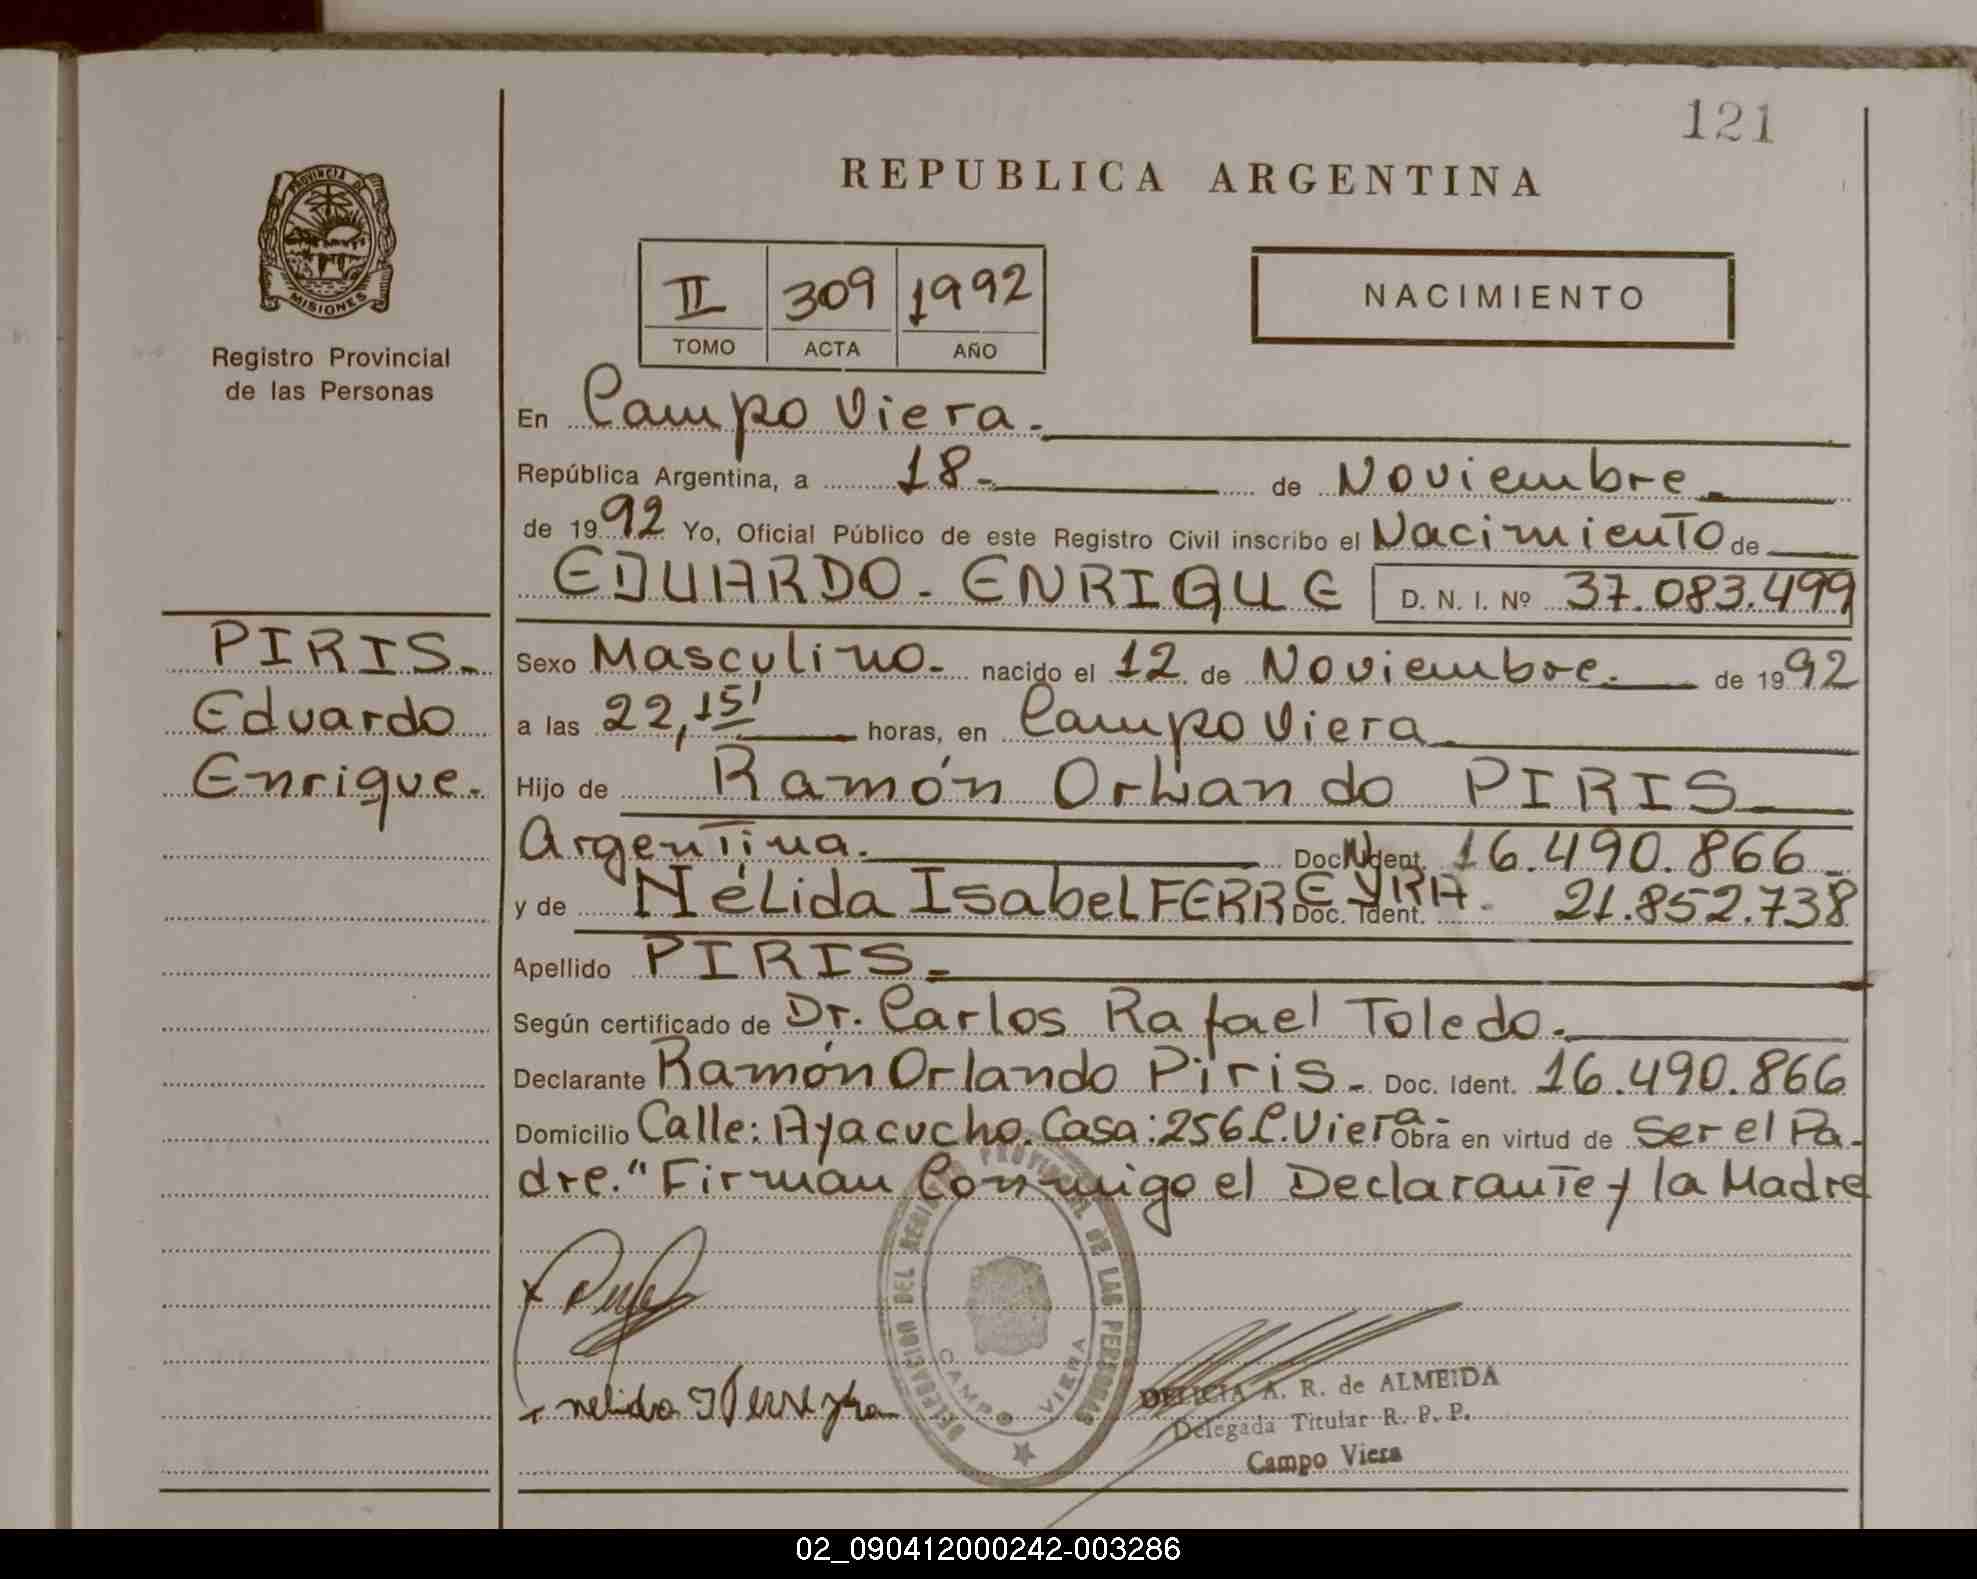 121
REPUBLICA ARGENTINA
PROVINCIA DE
MISIONES
Registro Provincial
de las Personas
II 309 1992
TOMO ACTA AÑO
NACIMIENTO
En Campo Viera.
República Argentina, a 18 de Noviembre
de 1992 Yo, Oficial Público de este Registro Civil inscribo el Nacimiento de
EDUARDO - ENRIQUE D. N. I. Nº 37.083.499
PIRIS.
Eduardo
Enrique.
Sexo Masculino. nacido el 12 de Noviembre. de 1992
a las 22,15' horas, en Campo Viera
Hijo de Ramón Orlando PIRIS
Argentina. Doc. Ident. 16.490.866
y de Nélida Isabel FERREYRA. Doc. Ident. 21.852.738
Apellido PIRIS.
Según certificado de Dr. Carlos Rafael Toledo.
Declarante Ramón Orlando Piris. Doc. Ident. 16.490.866
Domicilio Calle: Ayacucho. Casa: 256 C. Viera- Obra en virtud de Ser el Pa-
dre." Firman Conmigo el Declarante y la Madre
DELEGACION DEL REGISTRO PROVINCIAL DE LAS PERSONAS
CAMPO VIERA
nelida I Ferreyra
DELICIA A. R. de ALMEIDA
Delegada Titular R. P. P.
Campo Viera
02_090412000242-003286